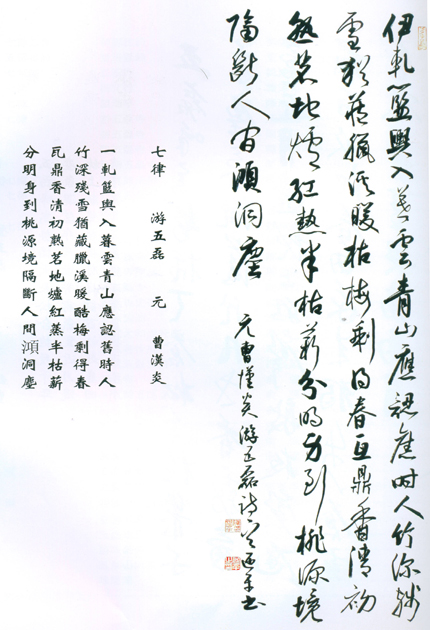 伊軋籃輿入暮雲青山應認舊時人竹深殘
雪猶藏臘溪暖枯梅剩得春瓦鼎香清初
熟茗地爐紅熱半枯薪分明身到桃源境
隔斷人間澒洞塵
元曹漢炎游五磊詩
七律 游五磊 元 曹漢炎
一軋籃輿入暮雲青山應認舊時人
竹深殘雪猶藏臘溪暖酷梅剩得春
瓦鼎香清初熟茗地爐紅蒸半枯薪
分明身到桃源境隔斷人間澒洞塵